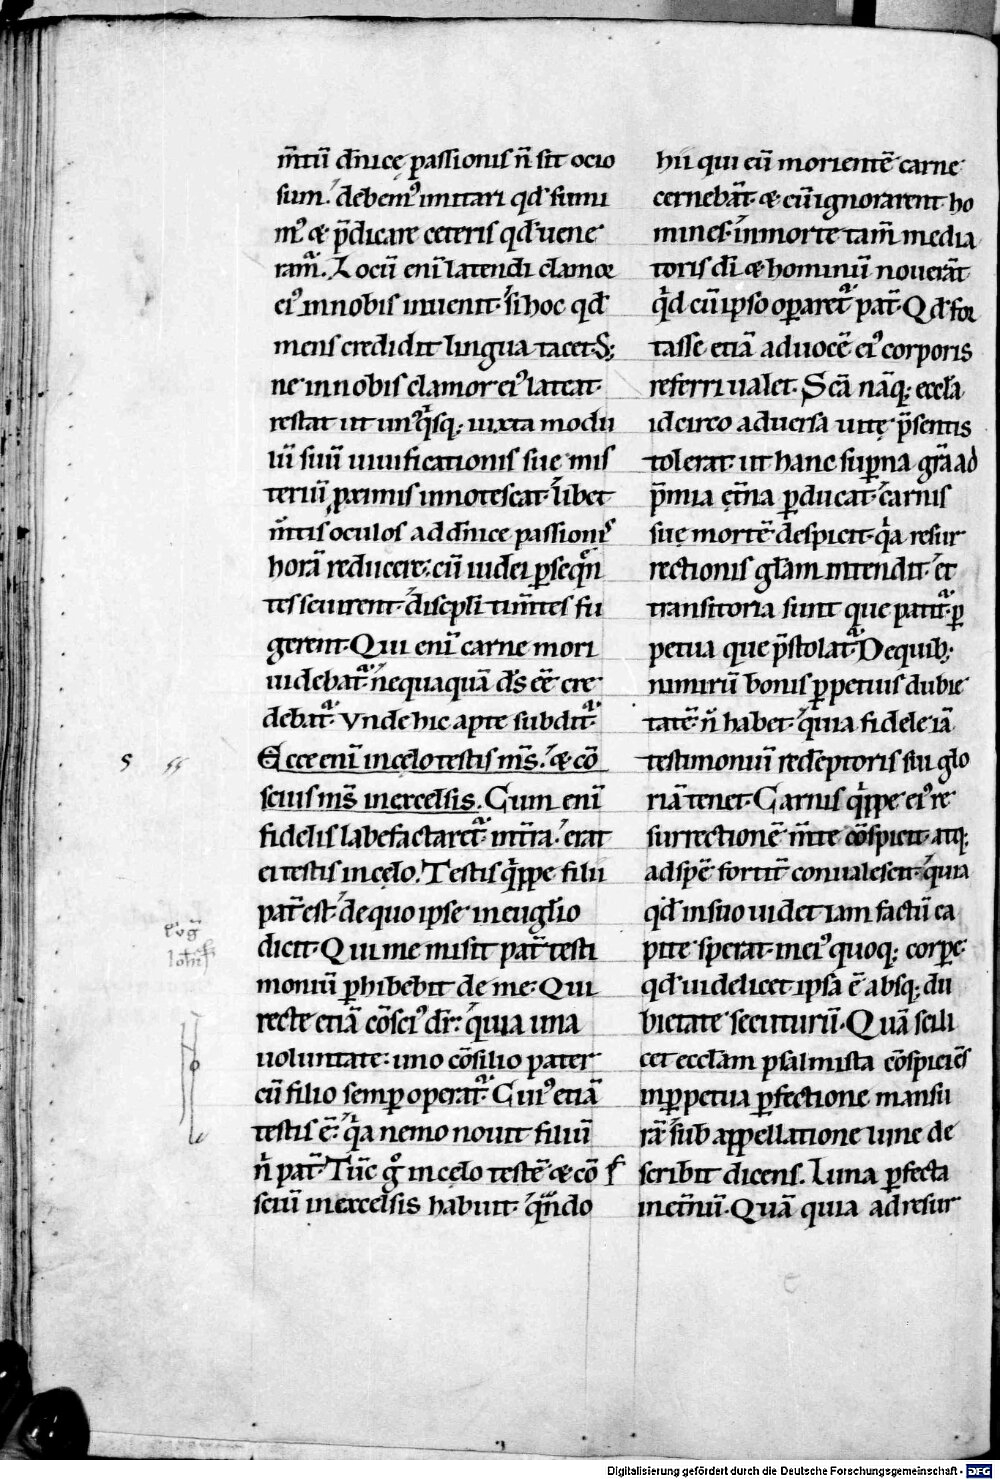 m̄tū dn̄icę passionis n̄ sit ocio
sum. debemꝰ imitari qd̓ sumi
mꝰ & p̄dicare ceteris qd̓ uene
ram̃. Locū enī latendi clamor
eiꝰ in nobis inuenit. si hoc qd̓
mens credidit lingua tacet. S;
ne in nobis clamor eiꝰ lateat.
restat ut unꝰqͥsq; iuxta modu
lū suū uiuificationis sue mis
teriū ꝓximis innotescat. libet
m̄tis oculos ad dn̄ice passionis
horā reducere. cū iudei ꝑseqn̄
tes seuirent. discipli tim̄tes fu
gerent. Qui enī carne mori
uidebat᷑. nequaquā ds̄ eē cre
debat᷑. Vnde hic apte subdit᷑.
Ecce enī in cęlo testis ms̄. & cō
scius ms̄ in excelsis. Cum enī
fidelis labefactaret᷑ int̄ra. erat
ei testis in cęlo. Testis qͥppe filii
pat̄ est. de quo ipse in euglio
dicit. Qui me misit pat̄ testi
moniū ꝑhibebit de me. Qui
recte etiā cōsciꝰ dr̄. quia una
uoluntate. uno cōsilio pater
cū filio semꝑ operat᷑. Cuiꝰ etiā
testis ē. qͥa nemo nouit filiū
n̄ pat̄. Tūc gͦ in cęlo testē & cō
sciū in excelsis habuit. qn̄do
hii qui eū morientē carne
cernebāt. & eū ignorarent ho
mines. in morte tam̄ media
toris di & hominū nouerāt
qͥd cū ipso oparet᷑ pat̄. Qd̓ for
tasse etiā ad uocē eiꝰ corporis
referri ualet. Scā nāq; eccla
idcirco aduersa uitę p̄sentis
tolerat. ut hanc suꝑna gr̄a ad
p̄mia et̄na ꝑducat. carnis
suę mortē despicit. qͥa resur
rectionis glam intendit. et
transitoria sunt que patit᷑. ꝑ
petua que p̄stolat᷑. De quib;
nimirū bonis ꝑpetuis dubie
tatē n̄ habet. quia fidele iā
testimoniū redēptoris sui glo
riā tenet. Carnis qͥppe eiꝰ re
surrectionē m̄te cōspicit. atq;
ad spē fortit̄ conualescit. quia
qd̓ in suo uidet iam factū ca
pite. sperat in eiꝰ quoq; corpe
qd̓ uidelicet ipsa ē absq; du
bietate secuturū. Quā scili
cet ecclam psalmista cōspiciēs
in ꝑpetua ꝑfectione mansu
rā. sub appellatione lune de
scribit dicens. Luna ꝑfecta
in et̄nū. Quā quia ad resur
Digitalisierung gefördert durch die Deutsche Forschungsgemeinschaft - DFG